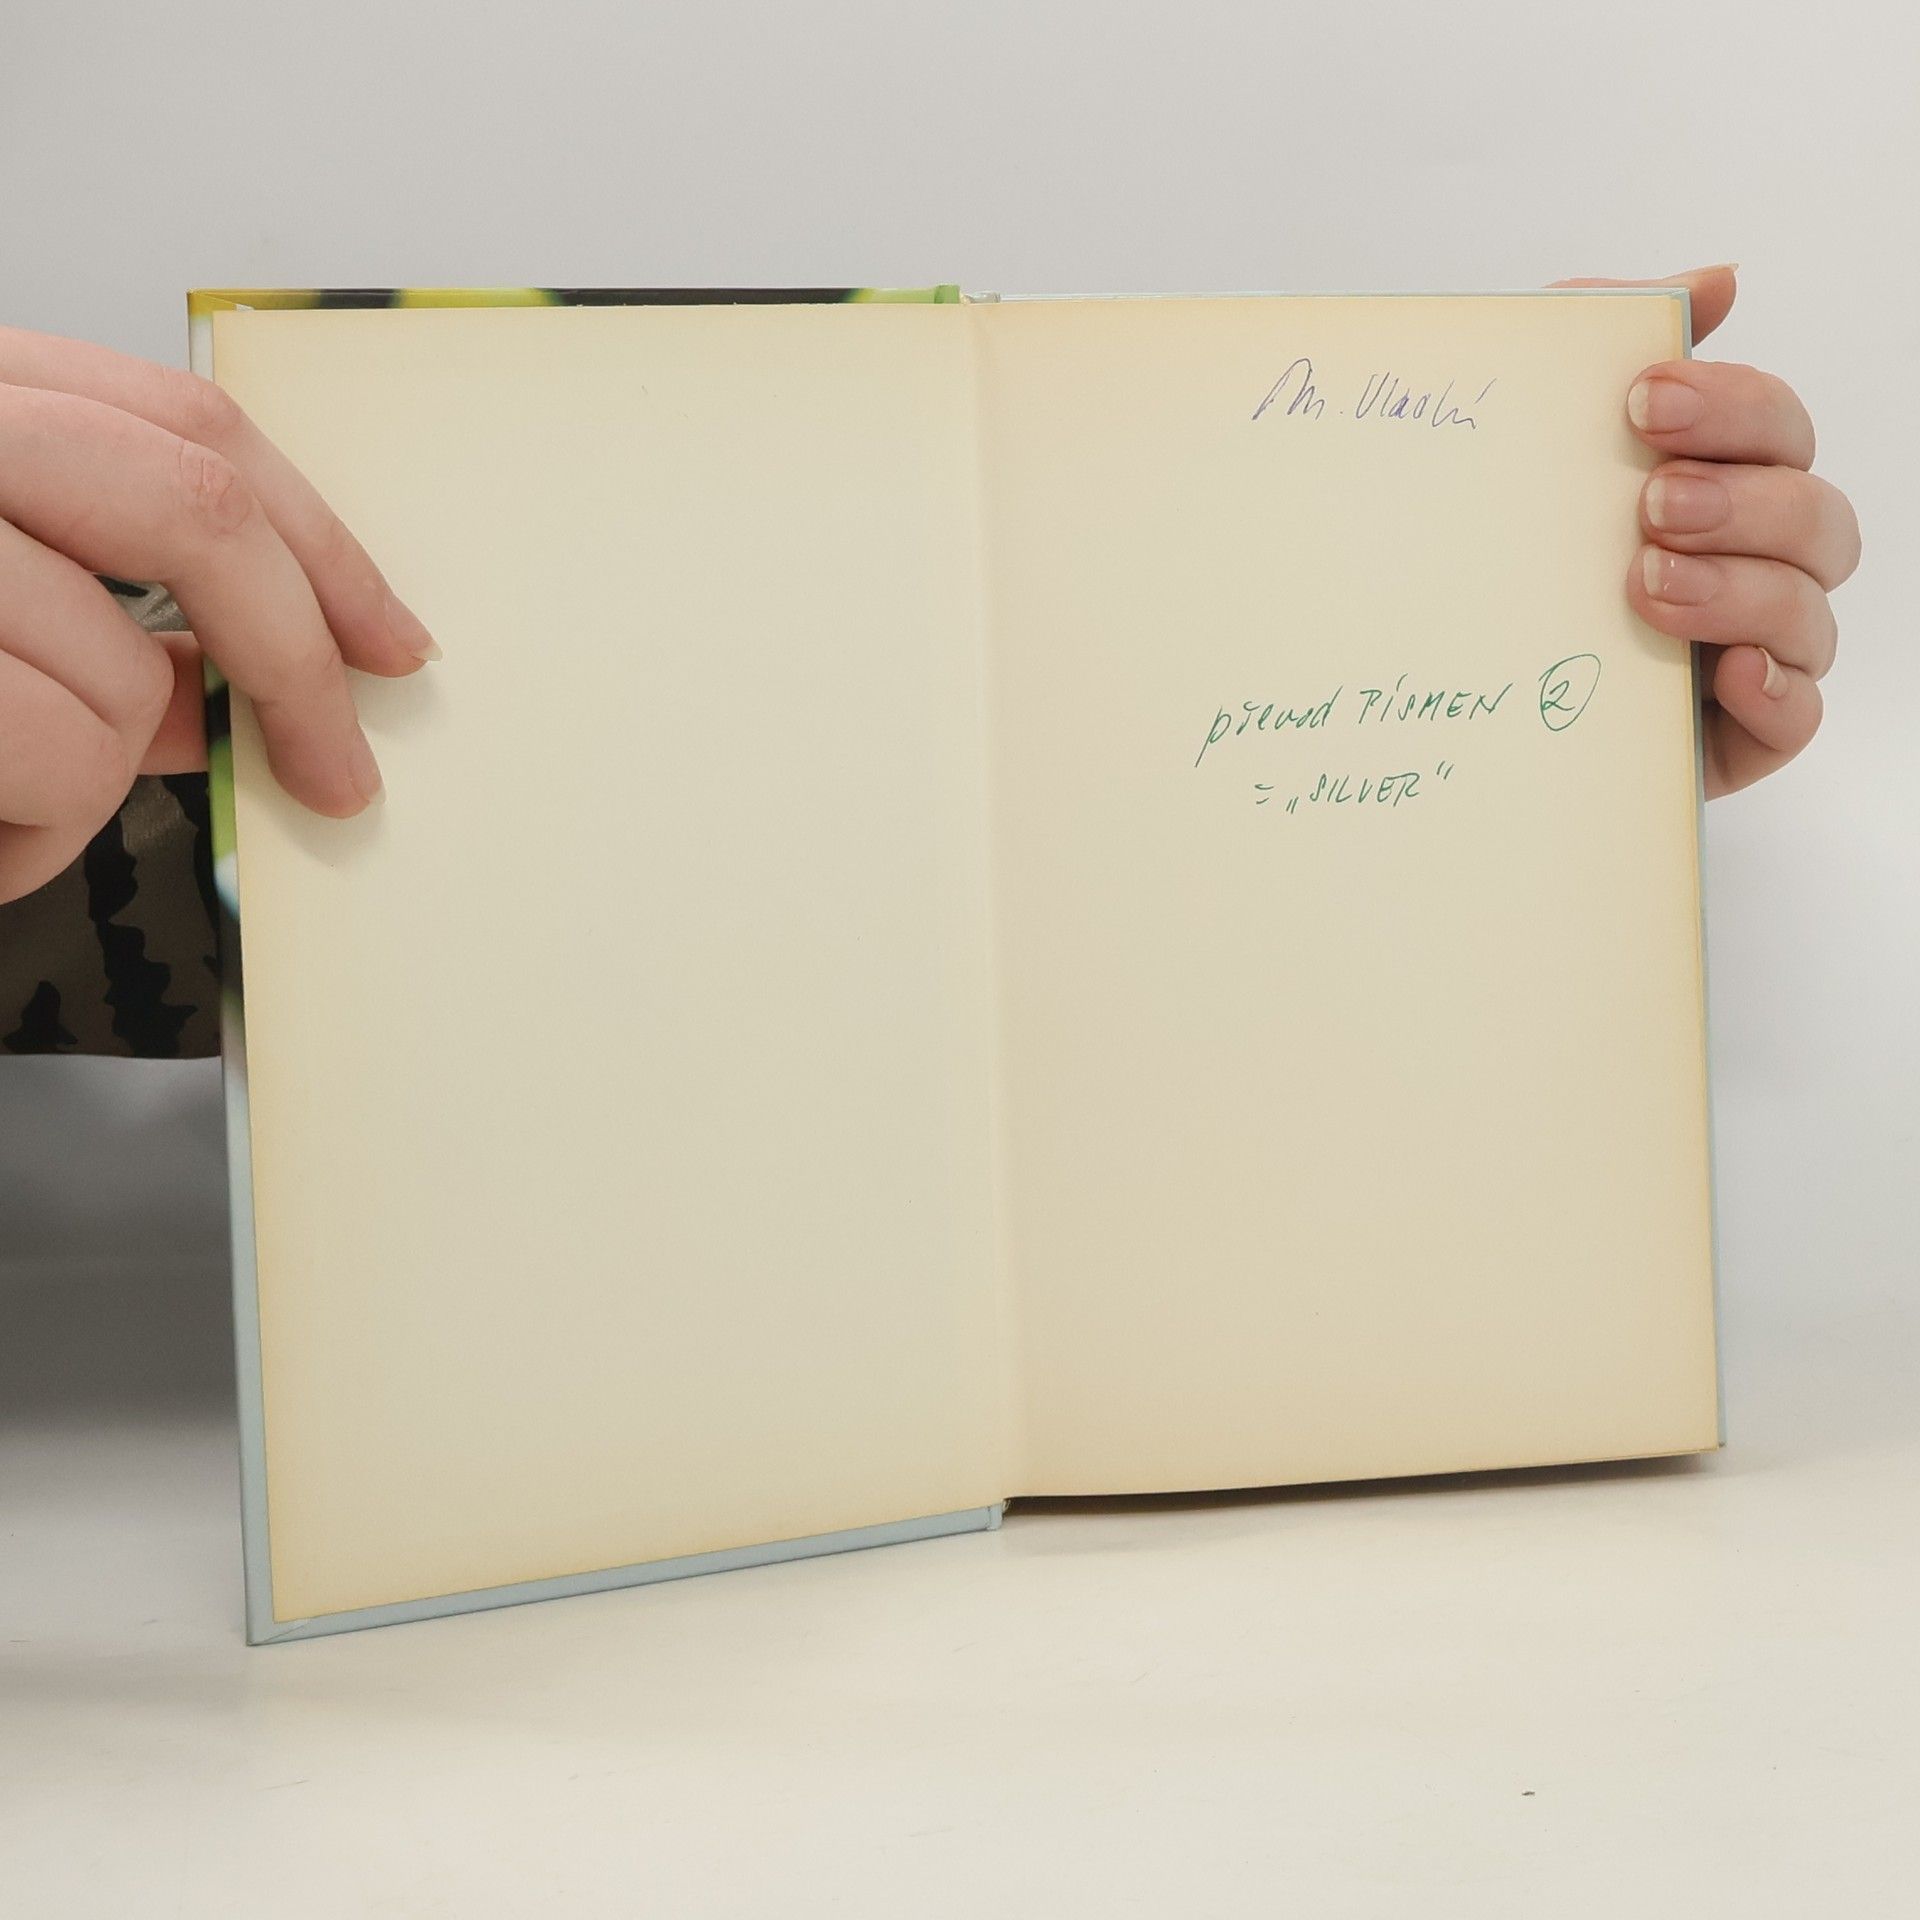 převod PÍSMEN ②
= „SILVER“